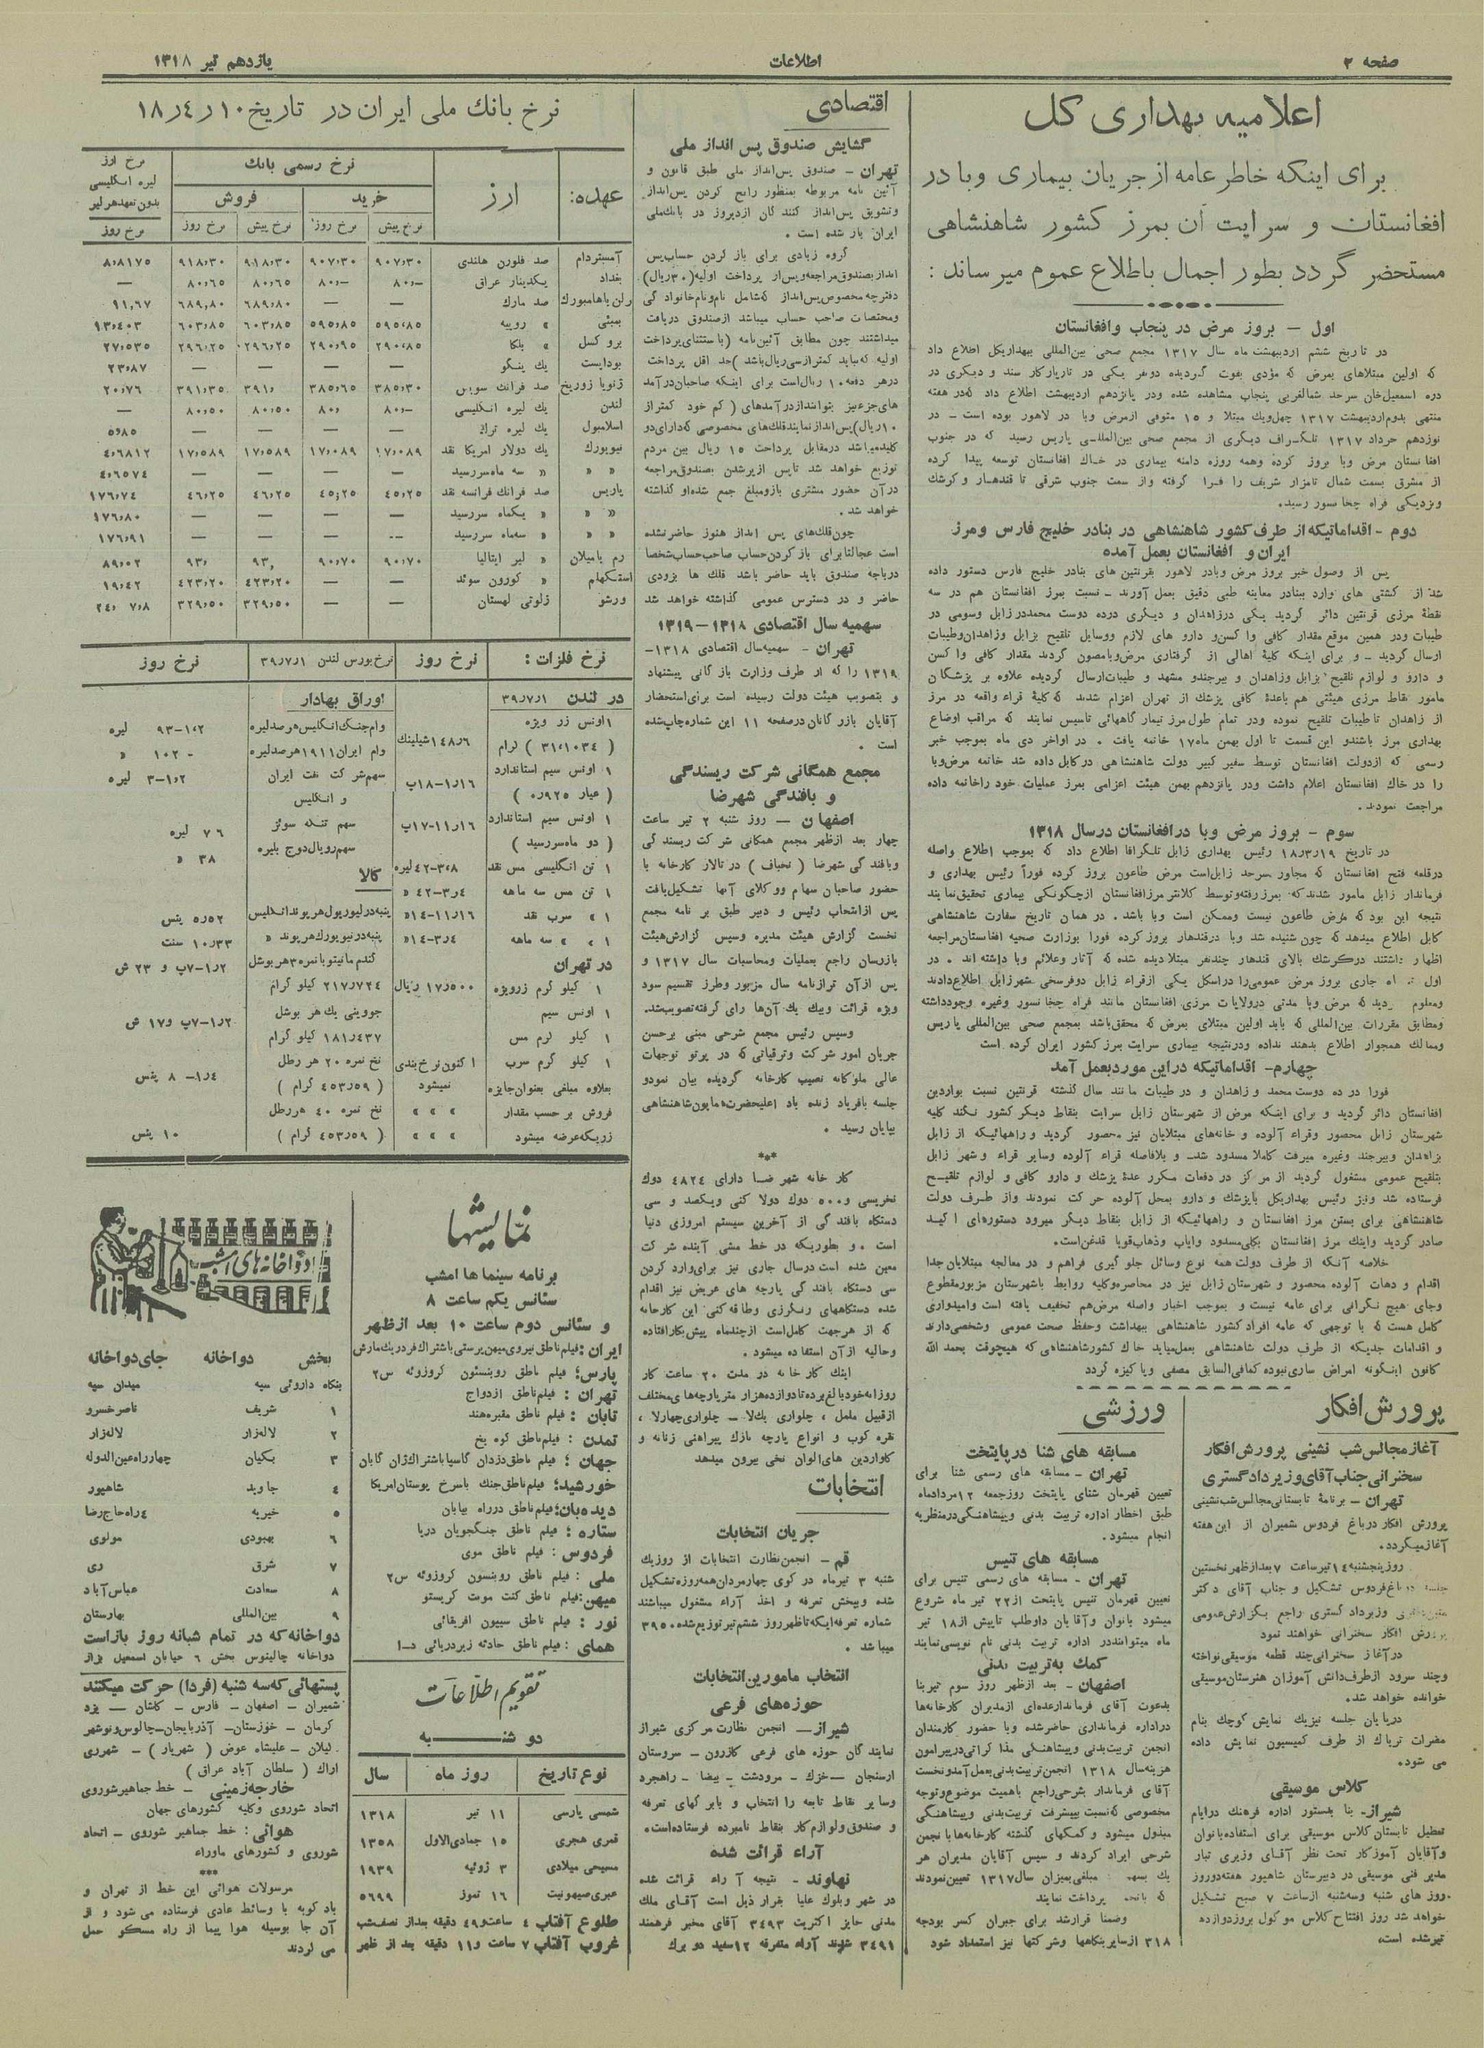 صفحه ۲
اطلاعات
یازدهم تیر ۱۳۱۸
اعلامیه بهداری کل
برای اینکه خاطر عامه از جریان بیماری وبا در
افغانستان و سرایت آن بمرز کشور شاهنشاهی
مستحضر گردد بطور اجمال باطلاع عموم میرساند :
اول – بروز مرض در پنجاب وافغانستان
در تاریخ ششم اردیبهشت ماه سال ۱۳۱۷ مجمع صحی بین‌المللی ببهداریکل اطلاع داد
که اولین مبتلاهای بمرض که مؤدی بفوت گردیده دونفر یکی در تاریارکار سند و دیگری در
دره اسمعیل‌خان سرحد شمالغربی پنجاب مشاهده شده ودر پانزدهم اردیبهشت اطلاع داد که در هفته
منتهی بدوم اردیبهشت ۱۳۱۷ چهل‌ویک مبتلا و ۱۵ متوفی از مرض وبا در لاهور بوده است – در
نوزدهم خرداد ۱۳۱۷ تلگراف دیگری از مجمع صحی بین‌المللی پاریس رسید که در جنوب
افغانستان مرض وبا بروز کرده وهمه روزه دامنه بیماری در خاک افغانستان توسعه پیدا کرده
از مشرق بسمت شمال تامزار شریف را فرا گرفته واز سمت جنوب شرقی تا قندهار و کرشک
ونزدیکی فراه چخانسور رسید.
دوم – اقداماتیکه از طرف کشور شاهنشاهی در بنادر خلیج فارس ومرز
ایران و افغانستان بعمل آمده
پس از وصول خبر بروز مرض وبادر لاهور بقرنتین های بنادر خلیج فارس دستور داده
شد از کشتی های وارد ببنادر معاینه طبی دقیق بعمل آورند – نسبت بمرز افغانستان هم در سه
نقطهٔ مرزی قرنتین دائر گردید یکی درزاهدان و دیگری درده دوست محمددرزابل وسومی در
طیبات ودر همین موقع مقدار کافی واکسن و دارو های لازم ووسایل تلقیح بزابل وزاهدان‌وطیبات
ارسال گردید – و برای اینکه کلیهٔ اهالی از گرفتاری مرض‌وبامصون گردند مقدار کافی واکسن
و دارو و لوازم تلقیح بزابل وزاهدان و بیرجندو مشهد و طیبات‌ارسال گردیده علاوه بر پزشکان
مامور نقاط مرزی هیئتی هم باعدهٔ کافی پزشک از تهران اعزام شدند که کلیهٔ قراء واقعه در مرز
از زاهدان تاطیبات تلقیح نموده ودر تمام طول مرز تیمار گاههائی تاسیس نمایند که مراقب اوضاع
بهداری مرز باشندو این قسمت تا اول بهمن ماه۱۷ خاتمه یافت . در اواخر دی ماه بموجب خبر
رسمی که ازدولت افغانستان توسط سفیر کبیر دولت شاهنشاهی درکابل داده شد خاتمه مرض‌وبا
را در خاک افغانستان اعلام داشت ودر پانزدهم بهمن هیئت اعزامی بمرز عملیات خود راخاتمه داده
مراجعت نمودند.
سوم – بروز مرض وبا درافغانستان درسال ۱۳۱۸
در تاریخ ۱۸٫۳٫۱۹ رئیس بهداری زابل تلگرافا اطلاع داد که بموجب اطلاع واصله
درقلعه فتح افغانستان که مجاور سرحد زابل‌است مرض طاعون بروز کرده فوراً رئیس بهداری و
فرماندار زابل مامور شدندکه بمرز رفته‌وتوسط کلانترمرزافغانستان ازچگونگی بیماری تحقیق‌نمایند
نتیجه این بود که مرض طاعون نیست وممکن است وبا باشد . در همان تاریخ سفارت شاهنشاهی
کابل اطلاع میدهد که چون شنیده شد وبا درقندهار بروز کرده فورا بوزارت صحیه افغانستان‌مراجعه
اظهار داشتند درکرشک بالای قندهار چندنفر مبتلا دیده شده که آثار وعلائم وبا داشته اند . در
اول ماه جاری بروز مرض عمومی‌را دراسکل یکی ازقراء زابل دوفرسخی شهرزابل اطلاع‌دادند
ومعلوم که مرض وبا مدتی درولایات مرزی افغانستان مانند فراه چخانسور وغیره وجودداشته
ومطابق مقررات بین‌المللی که باید اولین مبتلای بمرض که محقق‌باشد بمجمع صحی بین‌المللی پاریس
وممالک همجوار اطلاع بدهند نداده ودرنتیجه بیماری سرایت بمرز کشور ایران کرده است
چهارم– اقداماتیکه دراین موردبعمل آمد
فورا در ده دوست محمد و زاهدان و در طیبات مانند سال گذشته قرنتین نسبت بواردین
افغانستان دائر گردید و برای اینکه مرض از شهرستان زابل سرایت بنقاط دیگر کشور نکند کلیه
شهرستان زابل محصور وقراء آلوده و خانه‌های مبتلایان نیز محصور گردید و راههائیکه از زابل
بزاهدان وبیرجند وغیره میرفت کاملا مسدود شد– و بلافاصله قراء آلوده وسایر قراء و شهر زابل
بتلقیح عمومی مشغول گردید از مرکز در دفعات مکرر عدهٔ پزشک و دارو کافی و لوازم تلقیح
فرستاده شد ونیز رئیس بهداریکل باپزشک و دارو بمحل آلوده حرکت نمودند واز طرف دولت
شاهنشاهی برای بستن مرز افغانستان و راههائیکه از زابل بنقاط دیگر میرود دستورهای اکید
صادر گردید واینک مرز افغانستان بکلی‌مسدود وایاب وذهاب‌قویا قدغن‌است.
خلاصه آنکه از طرف دولت همه نوع وسائل جلو گیری فراهم و در معالجه مبتلایان‌جدا
اقدام و دهات آلوده محصور و شهرستان زابل نیز در محاصره‌وکلیه روابط باشهرستان مزبورمقطوع
وجای هیچ نگرانی برای عامه نیست و بموجب اخبار واصله مرض‌هم تخفیف یافته است وامیدواری
کامل هست که با توجهی که عامه افراد کشور شاهنشاهی ببهداشت وحفظ صحت عمومی وشخصی‌دارند
و اقدامات جدیکه از طرف دولت شاهنشاهی بعمل‌میاید خاک کشورشاهنشاهی که هیچوقت بحمد الله
کانون اینگونه امراض ساری‌نبوده کمافی‌السابق مصفی وپاکیزه گردد
پرورش افکار
آغاز مجالس شب نشینی پرورش افکار
سخنرانی جناب آقای وزیر دادگستری
تهران – برنامهٔ تابستانی مجالس شب‌نشینی
پرورش افکار درباغ فردوس شمیران از این هفته
آغاز میگردد.
روزپنجشنبه ۱۴ تیرساعت ۷ بعدازظهر نخستین
جلسه باغ‌فردوس تشکیل و جناب آقای دکتر
وزیردادگستری راجع بگزارش‌عمومی
پرورش افکار سخنرانی خواهند نمود
درآغاز سخنرانی‌چند قطعه موسیقی‌نواخته
وچند سرود ازطرف‌دانش آموزان هنرستان‌موسیقی
خوانده خواهد شد.
درپایان جلسه نیزیک نمایش کوچک بنام
مضرات تریاک از طرف کمیسیون نمایش داده
می شود.
کلاس موسیقی
شیراز– بنا بدستور اداره فرهنگ درایام
تعطیل تابستان کلاس موسیقی برای استفاده‌بانوان
وآقایان آموزگار تحت نظر آقای وزیری تبار
مدیر فنی موسیقی در دبیرستان شاهپور هفته‌دوروز
روز های شنبه وسه‌شنبه ازساعت ۷ صبح تشکیل
خواهد شد روز افتتاح کلاس موکول بروزدوازده
تیرشده است.
ورزشی
مسابقه های شنا درپایتخت
تهران – مسابقه های رسمی شنا برای
تعیین قهرمان شنای پایتخت روزجمعه ۱۳مردادماه
طبق اخطار اداره تربیت بدنی وپیشاهنگی‌درمنظریه
انجام میشود.
مسابقه های تنیس
تهران – مسابقه های رسمی تنیس برای
تعیین قهرمان تنیس پایتخت از۲۲ تیر ماه شروع
میشود بانوان وآقایان داوطلب تاپیش از۱۸ تیر
ماه میتوانند در اداره تربیت بدنی نام نویسی‌نمایند
کمک به‌تربیت بدنی
اصفهان – بعد ازظهر روز سوم تیربنا
بدعوت آقای فرماندارعده‌ای ازمدیران کارخانه‌ها
دراداره فرمانداری حاضرشده وبا حضور کارمندان
انجمن تربیت‌بدنی وپیشاهنگی مذاکراتی‌درپیرامون
هزینه‌سال ۱۳۱۸ انجمن‌تربیت‌بدنی‌بعمل‌آمدونخست
آقای فرماندار بشرحی‌راجع باهمیت موضوع‌وتوجه
مخصوصی که‌نسبت ببیشرفت تربیت‌بدنی وپیشاهنگی
مبذول میشود و کمکهای گذشته کارخانه‌ها بانجمن
شرحی ایراد کردند و سپس آقایان مدیران هر
یک بسهم مبلغی بمیزان سال۱۳۱۷ تعیین‌نمودند
که پرداخت نمایند
وضمنا قرارشد برای جبران کسر بودجه
۳۱۸ ازسایربنگاهها وشرکتها نیز استمداد شود
اقتصادی
گشایش صندوق پس انداز ملی
تهران – صندوق پس‌انداز ملی طبق قانون و
آئین نامه مربوطه بمنظور رایج کردن پس‌انداز
وتشویق پس‌انداز کنندگان ازدیروز در بانک‌ملی
ایران باز شده است .
گروه زیادی برای باز کردن حساب‌پس
اندازبصندوق‌مراجعه‌وپس‌از پرداخت اولیه(۳۰ریال)
دفترچه مخصوص پس‌انداز که‌شامل نام‌ونام‌خانوادگی
ومختصات صاحب حساب میباشد ازصندوق دریافت
میداشتند چون مطابق آئین‌نامه (باستثنای‌پرداخت
اولیه که‌نباید کمترازسی‌ریال‌باشد)حد اقل پرداخت
درهر دفعه ۱۰ ریال‌است برای اینکه صاحبان‌درآمد
های‌جزءنیز بتوانندازدرآمدهای (کم خود کمتراز
۱۰ریال)پس‌اندازنمایندقلک‌های مخصوصی که‌دارای‌دو
کلیدمیباشد درمقابل پرداخت ۱۵ ریال بین مردم
توزیع خواهد شد تاپس ازپرشدن بصندوق‌مراجعه
درآن حضور مشتری بازومبلغ جمع شده‌اوگذاشته
خواهد شد.
چون‌قلک‌های پس انداز هنوز حاضرنشده
است عجالتا‌برای بازکردن‌حساب صاحب‌حساب‌شخصا
درباجه صندوق باید حاضر باشد قلک ها بزودی
حاضر و در دسترس عمومی گذاشته خواهد شد
سهمیه سال اقتصادی ۱۳۱۸–۱۳۱۹
تهران – سهمیه‌سال اقتصادی ۱۳۱۸–
۱۳۱۹ را که از طرف وزارت بازرگانی پیشنهاد
و بتصویب هیئت دولت رسیده است برای‌استحضار
آقایان بازرگانان درصفحه ۱۱ این شماره‌چاپ‌شده
است .
مجمع همگانی شرکت ریسندگی
و بافندگی شهرضا
اصفهان – روز شنبه ۲ تیر ساعت
چهار بعد ازظهر مجمع همگانی شرکت ریسندگی
وبافندگی شهرضا (نخباف) در تالار کارخانه با
حضور صاحبان سهام ووکلای آنها تشکیل‌یافت
پس ازانتخاب رئیس و دبیر طبق برنامه مجمع
نخست گزارش هیئت مدیره وسپس گزارش‌هیئت
بازرسان راجع بعملیات ومحاسبات سال ۱۳۱۷ و
پس ازآن ترازنامه سال مزبور وطرز تقسیم سود
ویژه قرائت وبیک یک آن‌ها رای گرفته‌تصویب‌شد.
وسپس رئیس مجمع شرحی مبنی برحسن
جریان امور شرکت وترقیاتی که در پرتو توجهات
عالی ملوکانه نصیب کارخانه گردیده بیان نمودو
جلسه بافریاد زنده باد اعلیحضرت‌همایون‌شاهنشاهی
بپایان رسید .
***
کارخانه شهرضا دارای ۴۸۲۴ دوک
نخریسی و۵۰۰ دوک دولا کنی ویکصد و سی
دستگاه بافندگی از آخرین سیستم امروزی دنیا
است . و بطوریکه در خط مشی آینده شرکت
معین شده است درسال جاری نیز برای‌وارد کردن
سی دستگاه بافندگی پارچه های عریض نیز اقدام
شده دستگاههای رنگرزی وطاقه‌کنی این کارخانه
که از هرجهت کامل‌است ازچندماه پیش‌بکارافتاده
وحالیه ازآن استفاده میشود.
اینک کارخانه در مدت ۲۰ ساعت کار
روزانه‌خودبالغ‌برده‌تادوازده‌هزار مترپارچه‌های‌مختلف
ازقبیل ململ ، چلواری یک‌لا – چلواری‌چهارلا ،
نقره کوب و انواع پارچه نازک پیراهنی زنانه و
کاواردین های‌الوان نخی بیرون میدهد
انتخابات
جریان انتخابات
قم – انجمن‌نظارت انتخابات از روزیک
شنبه ۳ تیرماه در کوی چهارمردان‌همه‌روزه‌تشکیل
شده وبپخش تعرفه و اخذ آراء مشغول میباشند
شماره تعرفه‌ایکه‌تاظهرروز ششم‌تیرتوزیع‌شده۳۹۵۰
میباشد .
انتخاب مامورین انتخابات
حوزه‌های فرعی
شیراز– انجمن نظارت مرکزی شیراز
نمایندگان حوزه های فرعی کازرون – سروستان
ارسنجان – خرک – مرودشت – بیضا – رامجرد
وسایر نقاط تابعه را انتخاب و بابرگهای تعرفه
و صندوق‌ولوازم‌کار بنقاط نامبرده فرستاده‌است.
آراء قرائت شده
نهاوند – نتیجه آراء قرائت شده
در شهر وبلوک علیا بقرار ذیل است آقای ملک
مدنی حایز اکثریت ۳۴۹۳ آقای مخبر فرهمند
۳۴۹۱ شوند آراء متفرقه ۱۲سفید دو برگ
نرخ بانک ملی ایران در تاریخ ۱۸٫۴٫۱۰
عهده: ارز نرخ رسمی بانک نرخ ارز
لیره انگلیسی
بدون تعهدهرلیر
خرید فروش
نرخ پیش نرخ روز نرخ پیش نرخ روز نرخ روز
آمستردام صد فلورن هلندی ۹۰۷٫۳۰ ۹۰۷٫۳۰ ۹۱۸٫۳۰ ۹۱۸٫۳۰ ۸٫۸۱۷۵
بغداد یکدینار عراق ۸۰٫– ۸۰٫– ۸۰٫۶۵ ۸۰٫۶۵ —
رلن یاهامبورک صد مارک — — ۶۸۹٫۸۰ ۶۸۹٫۸۰ ۹۱٫۶۷
بمبئی » روپیه ۵۹۵٫۸۵ ۵۹۵٫۸۵ ۶۰۳٫۸۵ ۶۰۳٫۸۵ ۱۳٫۴۰۳
بروکسل » بلکا ۲۹۰٫۸۵ ۲۹۰٫۹۵ ۲۹۶٫۲۵ ۲۹۶٫۲۵ ۲۷٫۵۳۵
بوداپست یک پنگو — — — — ۲۳٫۸۷
ژنویا زوریخ صد فرانک سویس ۳۸۵٫۳۰ ۳۸۵٫۶۵ ۳۹۱٫ ۳۹۱٫۳۵ ۲۰٫۷۶
لندن یک لیره انگلیسی ۸۰٫– ۸۰٫ ۸۰٫۵۰ ۸۰٫۵۰ —
اسلامبول یک لیره ترک — — — — ۵٫۸۵
نیویورک یک دولار امریکا نقد ۱۷٫۰۸۹ ۱۷٫۰۸۹ ۱۷٫۵۸۹ ۱۷٫۵۸۹ ۴٫۶۸۱۲
» » » سه ماه‌سررسید — — — — ۴٫۶۵۷۴
پاریس صد فرانک فرانسه نقد ۴۵٫۲۵ ۴۵٫۲۵ ۴۶٫۲۵ ۴۶٫۲۵ ۱۷۶٫۷۴
» » » یکماه سررسید — — — — ۱۷۶٫۸۰
» » » سه‌ماه سررسید — — — — ۱۷۶٫۹۱
رم یامیلان » لیر ایتالیا ۹۰٫۷۰ ۹۰٫۷۰ ۹۳٫ ۹۳٫ ۸۹٫۰۲
استکهلم » کورون سوئد — — ۴۲۳٫۲۰ ۴۲۳٫۲۰ ۱۹٫۴۲
ورشو زلوتی لهستان — — ۳۲۹٫۵۰ ۳۲۹٫۵۰ ۲۴٫۷٫۸
نرخ فلزات : نرخ روز
در لندن ۳۹٫۷٫۱
۱اونس زر ویژه ۱۴۸٫۶شیلینک
(۳۱٫۱۰۳۴ گرام)
۱ اونس سیم استاندارد ۱۶٫۱–۱۸پ
(عیار ۰٫۹۲۵)
۱ اونس سیم استاندارد ۱۶٫۱۱–۱۷پ
(دو ماه‌سررسید)
۱ تن انگلیسی مس نقد ۳۰۸–۴۲لیره
۱ تن مس سه ماهه ۴٫۳–۴۲ »
۱ » سرب نقد ۱۶٫۱۱–۱۴»
۱ » » سه ماهه ۴٫۳–۱۴»
در تهران
۱ کیلو گرم زرویژه ۱۷٫۵۰۰ ریال
۱ اونس سیم
۱ کیلو گرم مس
۱ کیلو گرم سرب اکنون نرخ‌بندی
نمیشود
بعلاوه مبلغی بعنوان‌جایزه
فروش برحسب مقدار » » »
زریکه‌عرضه میشود » » »
نرخ‌بورس لندن ۳۹٫۷٫۱ نرخ روز
اوراق بهادار
وام‌جنک‌انگلیس‌هرصدلیره ۱٫۲–۹۳ لیره
وام ایران ۱۹۱۱هرصدلیره ۱۰۲– »
سهم‌شرکت نفت ایران ۱٫۲–۳ لیره
و انگلیس
سهم تنگه سوئز ۷۶ لیره
سهم‌رویال‌دوچ بلیره ۳۸ »
کالا
پنبه‌درلیورپول‌هرپوندانگلیس ۵٫۵۲ پنس
پنبه‌درنیویورک‌هرپوند » ۱۰٫۳۳ سنت
گندم مانیتوبا نمره۳هربوشل ۲٫۱–۷پ و ۲۳ ش
۲۱۷٫۷۲۴ کیلو گرام
جووینی پک هر بوشل ۲٫۱–۷پ و۱۷ ش
۱۸۱٫۴۳۷ کیلو گرام
نخ نمره ۲۰ هر رطل ۴٫۱– ۸ پنس
(۴۵۳٫۵۹ گرام)
نخ نمره ۴۰ هررطل ۱۰ پنس
(۴۵۳٫۵۹ گرام)
نمایشها
برنامه سینما ها امشب
سئانس یکم ساعت ۸
و سئانس دوم ساعت ۱۰ بعد ازظهر
ایران: فیلم‌ناطق نیروی‌میهن‌پرستی‌باشتراک‌فردریک‌مارش
پارس: فیلم ناطق روبنسون کروزوئه س۲
تهران : فیلم‌ناطق ازدواج
تابان : فیلم ناطق مقبره‌هند
تمدن : فیلم‌ناطق کوه یخ
جهان : فیلم ناطق‌دزدان گاسپاباشتراک‌ژان گابان
خورشید: فیلم‌ناطق‌جنک باسرخ پوستان‌امریکا
دیده‌بان: فیلم‌ناطق درراه بیابان
ستاره : فیلم ناطق جنگجویان دریا
فردوس : فیلم ناطق موی
ملی : فیلم ناطق روبنسون کروزوئه س۲
میهن: فیلم‌ناطق کنت مونت کریستو
نور : فیلم ناطق سیبون افریقائی
همای : فیلم‌ناطق حادثه زیردریائی د–۱
تقویم اطلاعات
دو شنبه
نوع تاریخ روز ماه سال
شمسی پارسی ۱۱ تیر ۱۳۱۸
قمری هجری ۱۵ جمادی‌الاول ۱۳۵۸
مسیحی میلادی ۳ ژوئیه ۱۹۳۹
عبری‌صیهونیت ۱۶ تموز ۵۶۹۹
طلوع آفتاب ۴ ساعت‌و۴۹ دقیقه بعداز نصف‌شب
غروب آفتاب ۷ ساعت و۱۱ دقیقه بعد از ظهر
دواخانه‌های امشب
بخش دواخانه جای‌دواخانه
بنگاه داروئی سپه میدان سپه
۱ شریف ناصرخسرو
۲ لاله‌زار لاله‌زار
۳ بکیان چهارراه‌عین‌الدوله
۴ جاوید شاهپور
۵ خیریه ۴راه‌حاج‌رضا
۶ بهبودی مولوی
۷ شرق ری
۸ سعادت عباس‌آباد
۹ بین‌المللی بهارستان
دواخانه‌که در تمام شبانه روز بازاست
دواخانه جالینوس بخش ۶ خیابان اسمعیل بزاز
پستهائی‌که‌سه شنبه (فردا) حرکت میکنند
شمیران – اصفهان – فارس – کاشان – یزد
کرمان – خوزستان– آذربایجان–چالوس‌ونوشهر
گیلان – علیشاه عوض (شهریار) – شهرری
اراک (سلطان آباد عراق)
خارجه‌زمینی – خط جماهیرشوروی
اتحاد شوروی وکلیه کشورهای جهان
هوائی: خط جماهیر شوروی – اتحاد
شوروی و کشورهای ماوراء
***
مرسولات هوائی این خط از تهران و
باد کوبه با وسائط عادی فرستاده می شود و از
آن جا بوسیله هوا پیما از راه مسکو حمل
می گردند